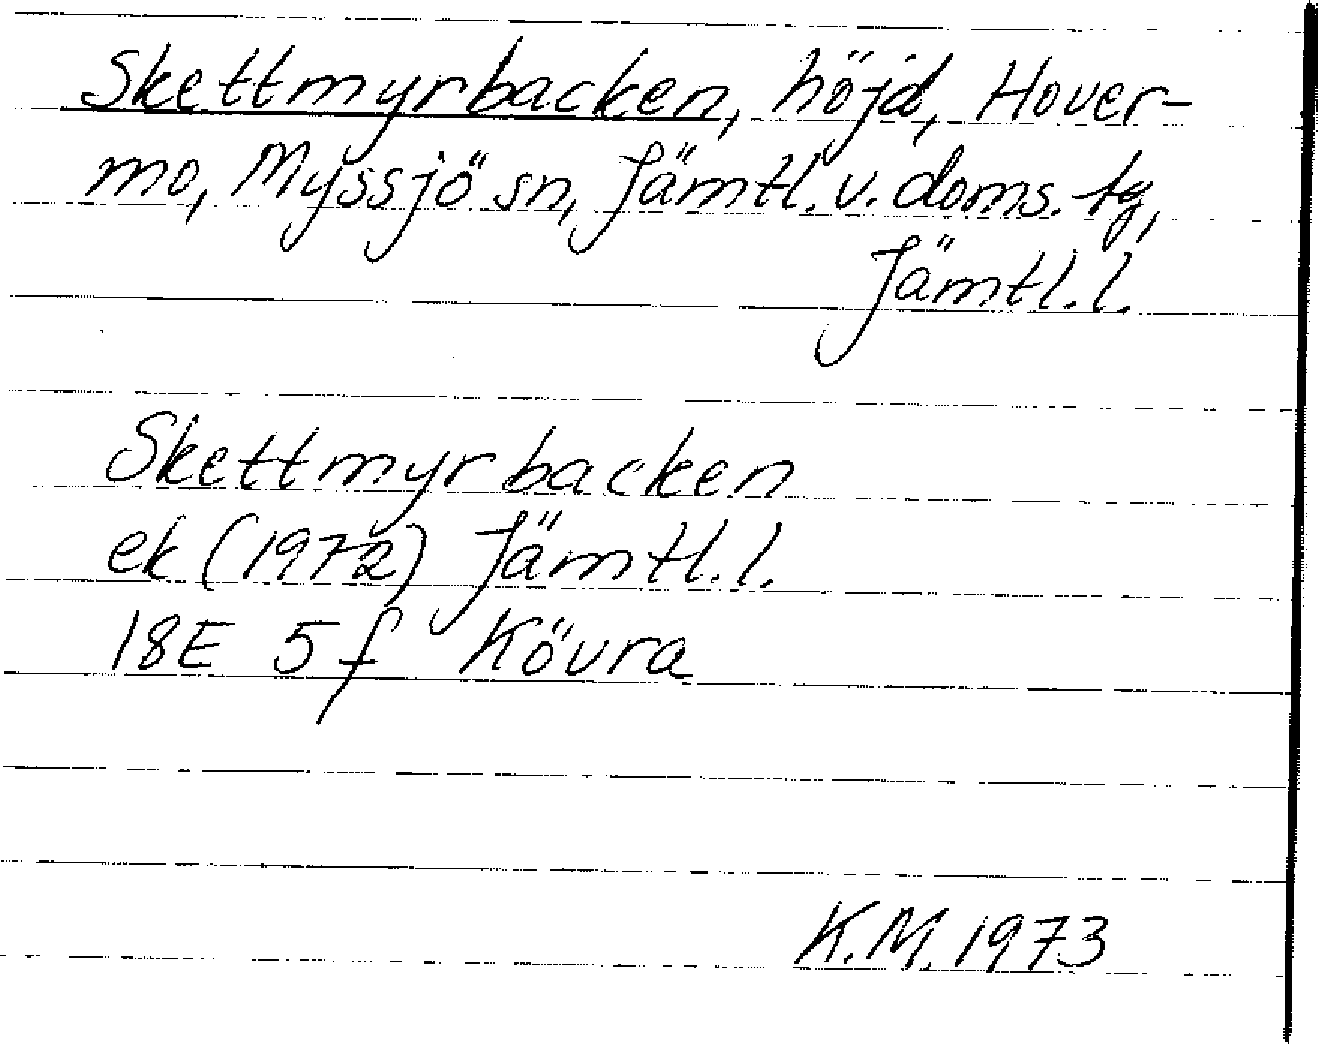 Skettmyrbacken, höjd, Hover-
mo, Myssjö sn, Jämtl. v. doms. tg,
Jämtl. l.
Skettmyrbacken
ek (1972) Jämtl. l.
18E 5f Kövra
K.M. 1973